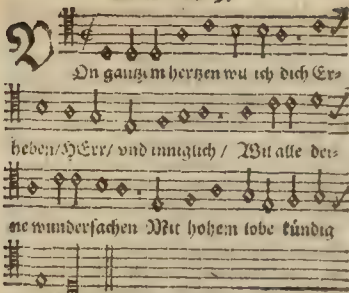 VOn gantzem hertzen wil ich dich Er-
heben/HErr/ vnd inniglich / Wil alle dei-
ne wundersachen Mit hohem lobe kündig